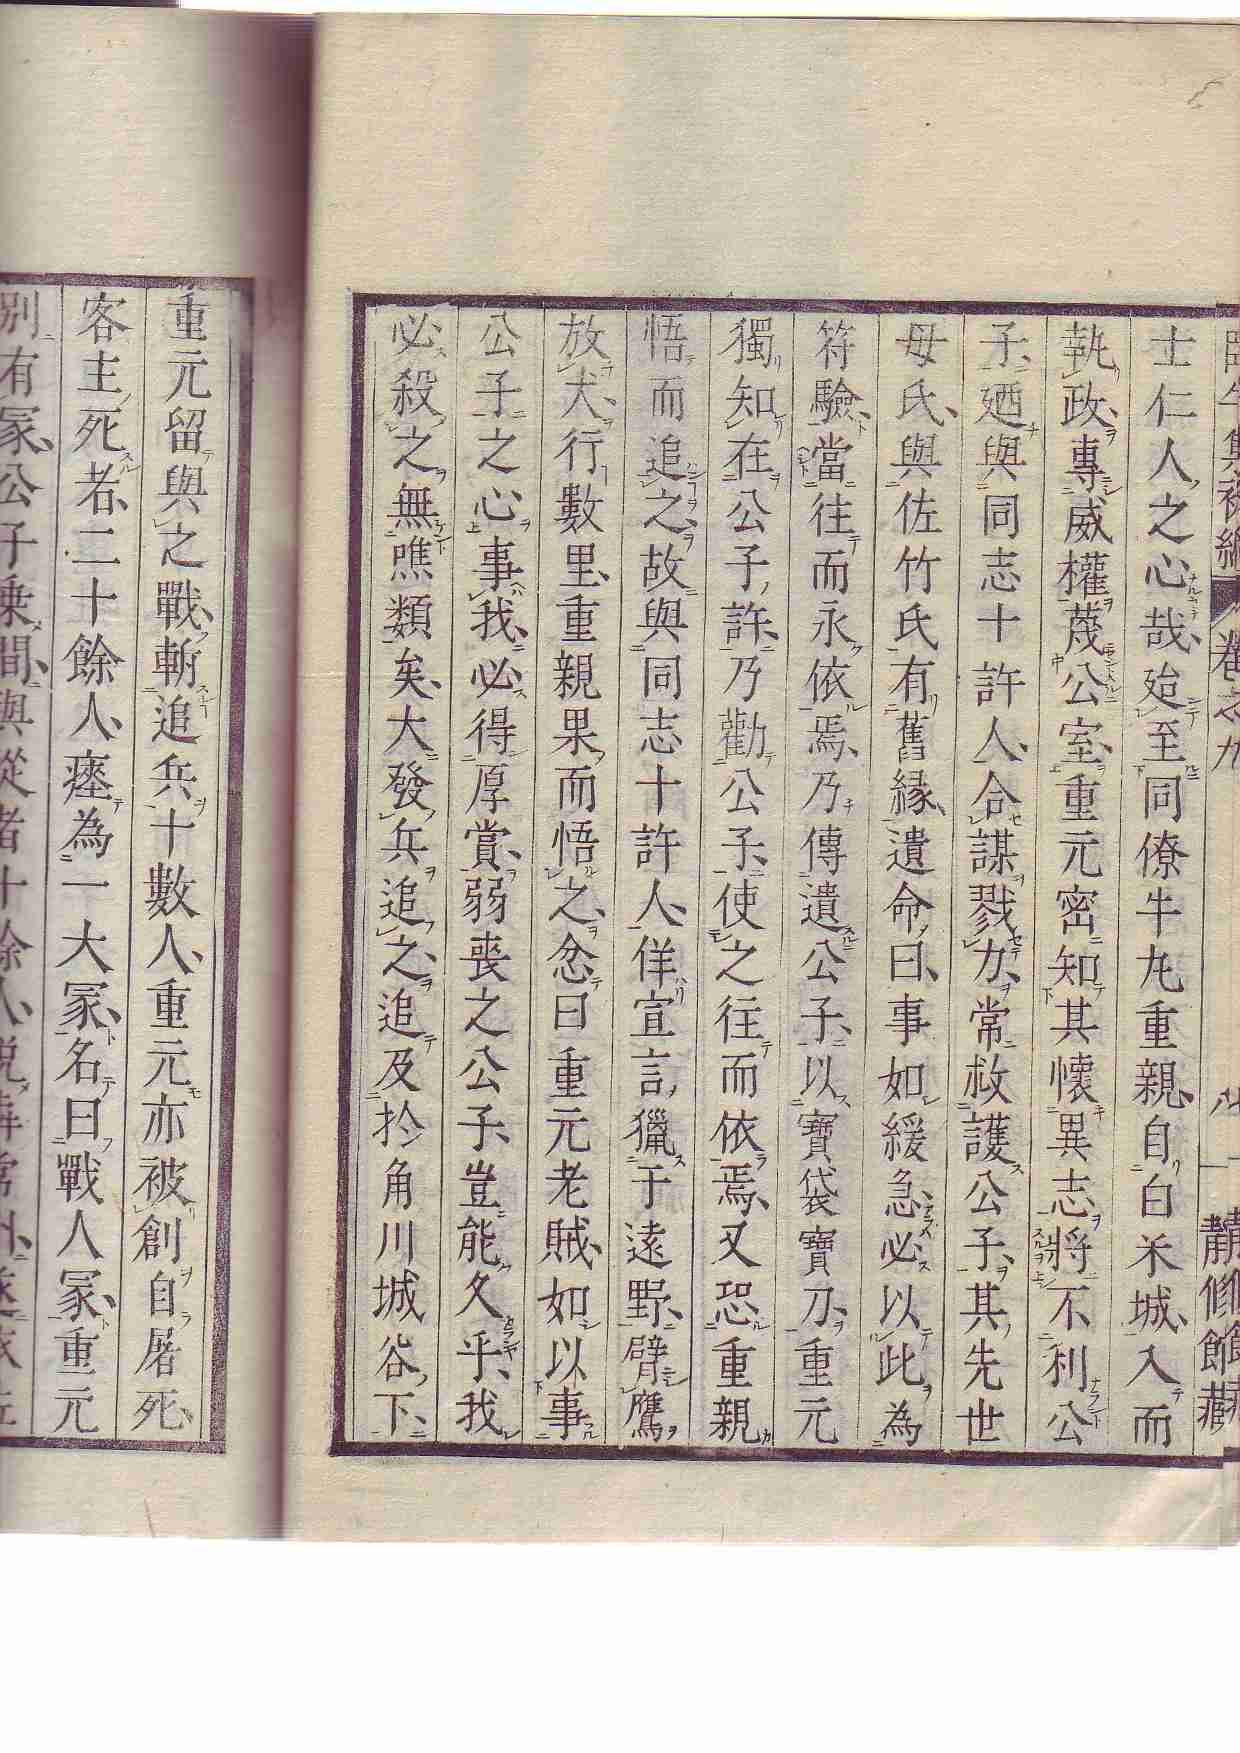 卷之九
八
靜修館藏
士仁人之心哉、迨至同僚牛丸重親、自白米城、入而
執政、專威權蔑公室、重元密知其懷異志、將不利公
子、廼與同志十許人、合謀戮力、常救護公子、其先世
母氏、與佐竹氏有舊緣、遺命曰、事如緩急、必以此為
符驗、當往而永依焉、乃傳遺公子、以寶袋寶刀、重元
獨知在公子許、乃勸公子、使之往而依焉、又恐重親
悟而追之、故與同志十許人、佯宣言、獵于遠野、臂鷹
放犬、行數里、重親果而悟之、忿曰重元老賊、如以事
公子之心、事我、必得厚賞、弱喪之公子、豈能久乎、我
必殺之、無噍類矣、大發兵追之、追及於角川城谷下、
重元留與之戰、斬追兵十數人、重元亦被創自屠死、
客主死者、二十餘人、瘞為一大冢、名曰戰人冢、重元
別有冢、公子乘間、與從者十餘人、